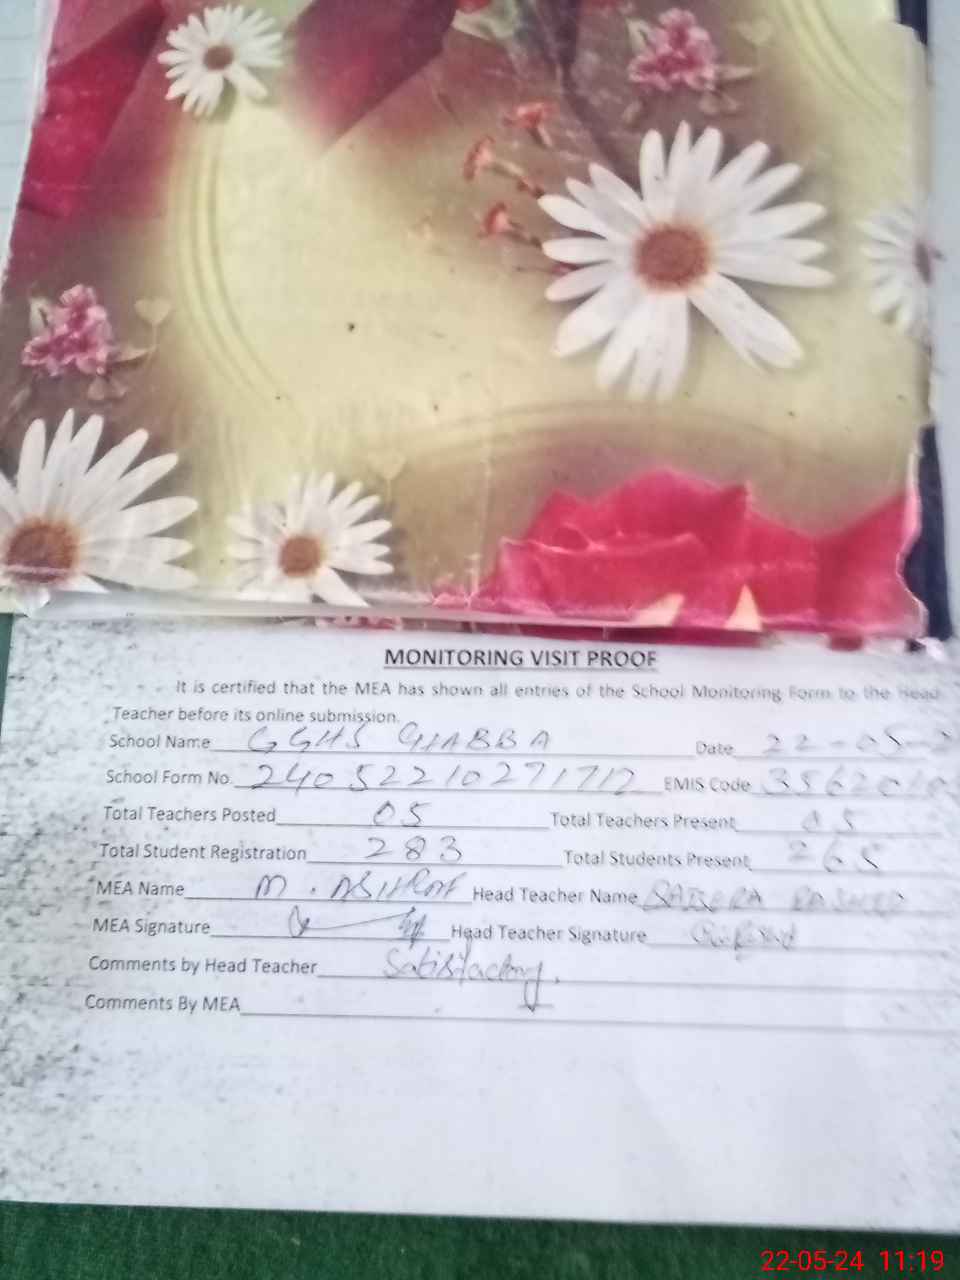 MONITORING VISIT PROOF
It is certified that the MEA has shown all entries of the School Monitoring Form to the Head
Teacher before its online submission.
School Name GGHS GHABBA Date 22-05-2
School Form No. 24052210271712 EMIS Code 35620
Total Teachers Posted 05 Total Teachers Present 05
Total Student Registration 283 Total Students Present 265
MEA Name M. Head Teacher Name
MEA Signature Head Teacher Signature
Comments by Head Teacher Satisfactory.
Comments By MEA
22-05-24 11:19